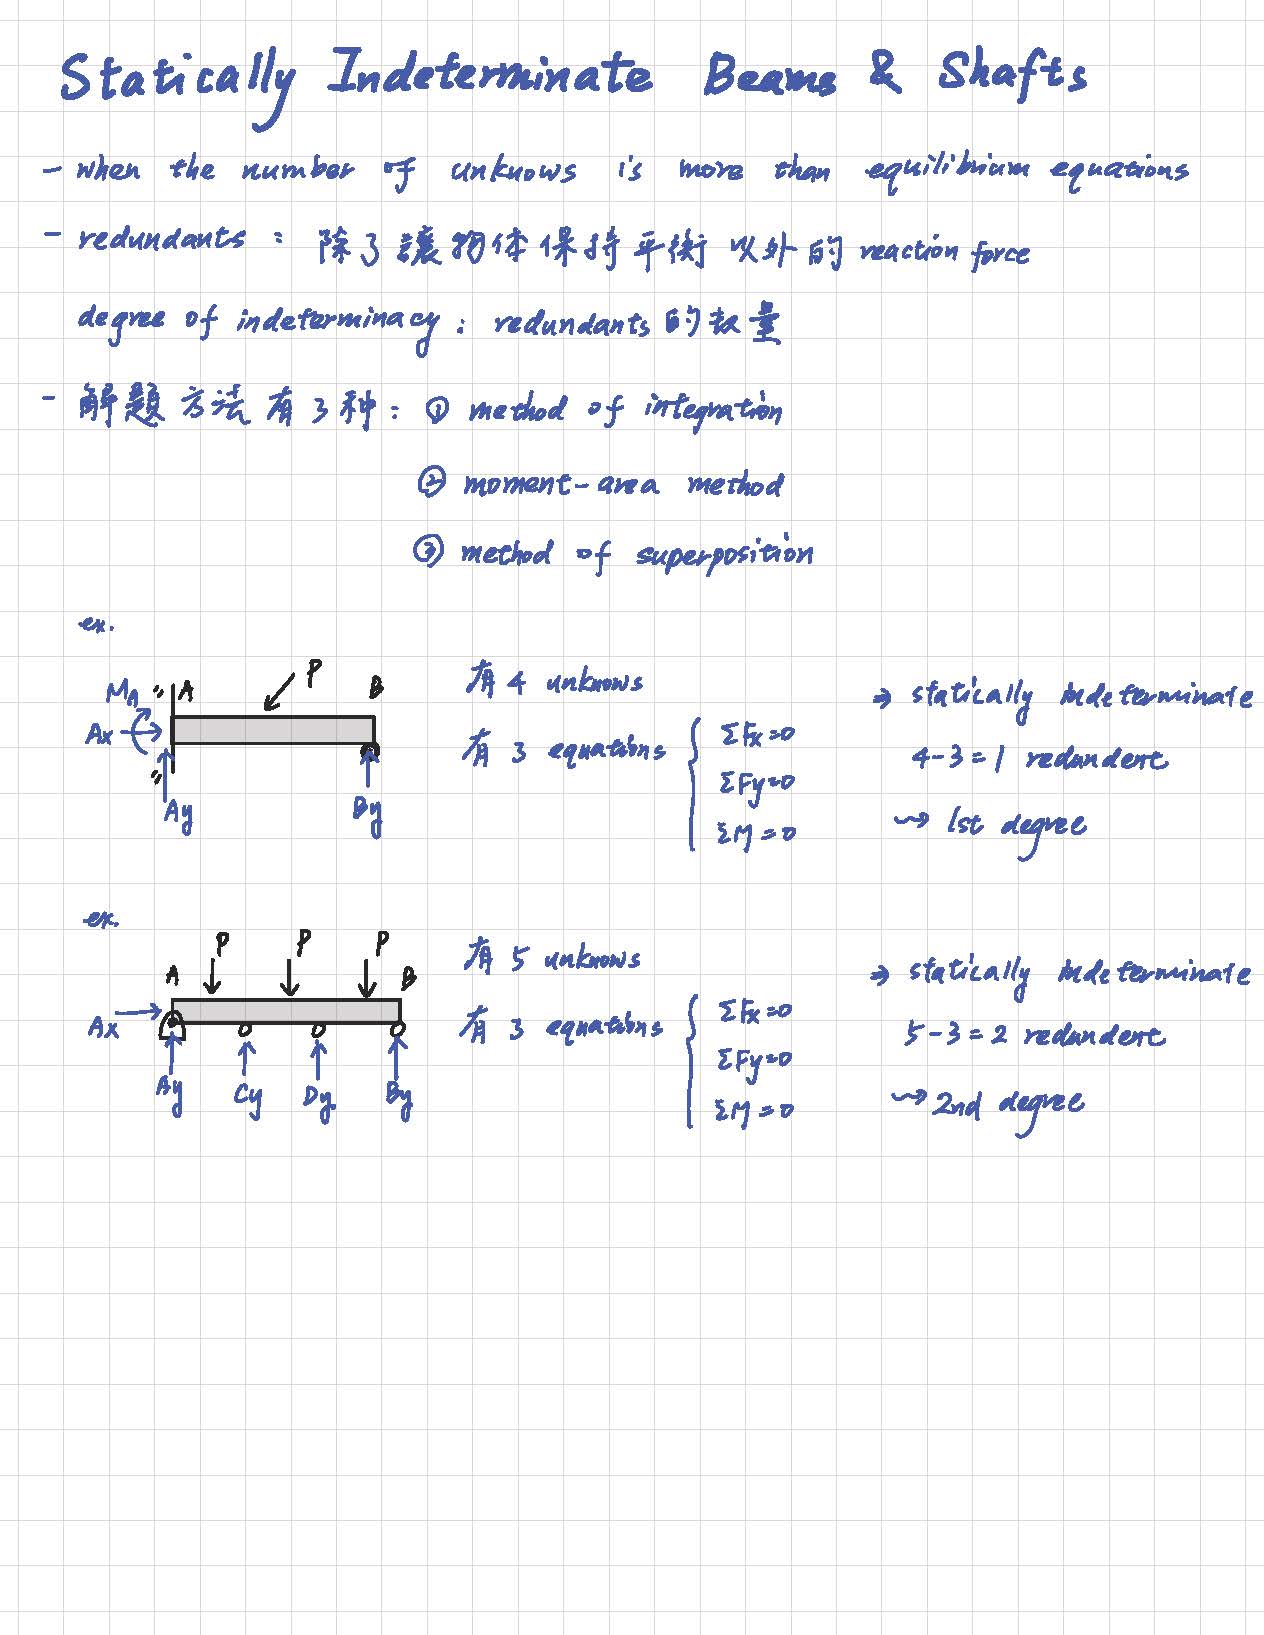 Statically Indeterminate Beams & Shafts
- when the number of unknows is more than equilibrium equations
- redundants : 除了讓物体保持平衡以外的 reaction force
degree of indeterminacy : redundants 的数量
- 解題方法有3种 : ① method of integration
② moment-area method
③ method of superposition
ex.
P
A
B
MA
Ax
Ay
By
有 4 unknows
有 3 equations
ΣFx=0
ΣFy=0
ΣM=0
⇒ statically indeterminate
4-3=1 redundent
⇝ 1st degree
ex.
P P P
A B
Ax
Ay Cy Dy By
有 5 unknows
有 3 equations
ΣFx=0
ΣFy=0
ΣM=0
⇒ statically indeterminate
5-3=2 redundent
⇝ 2nd degree